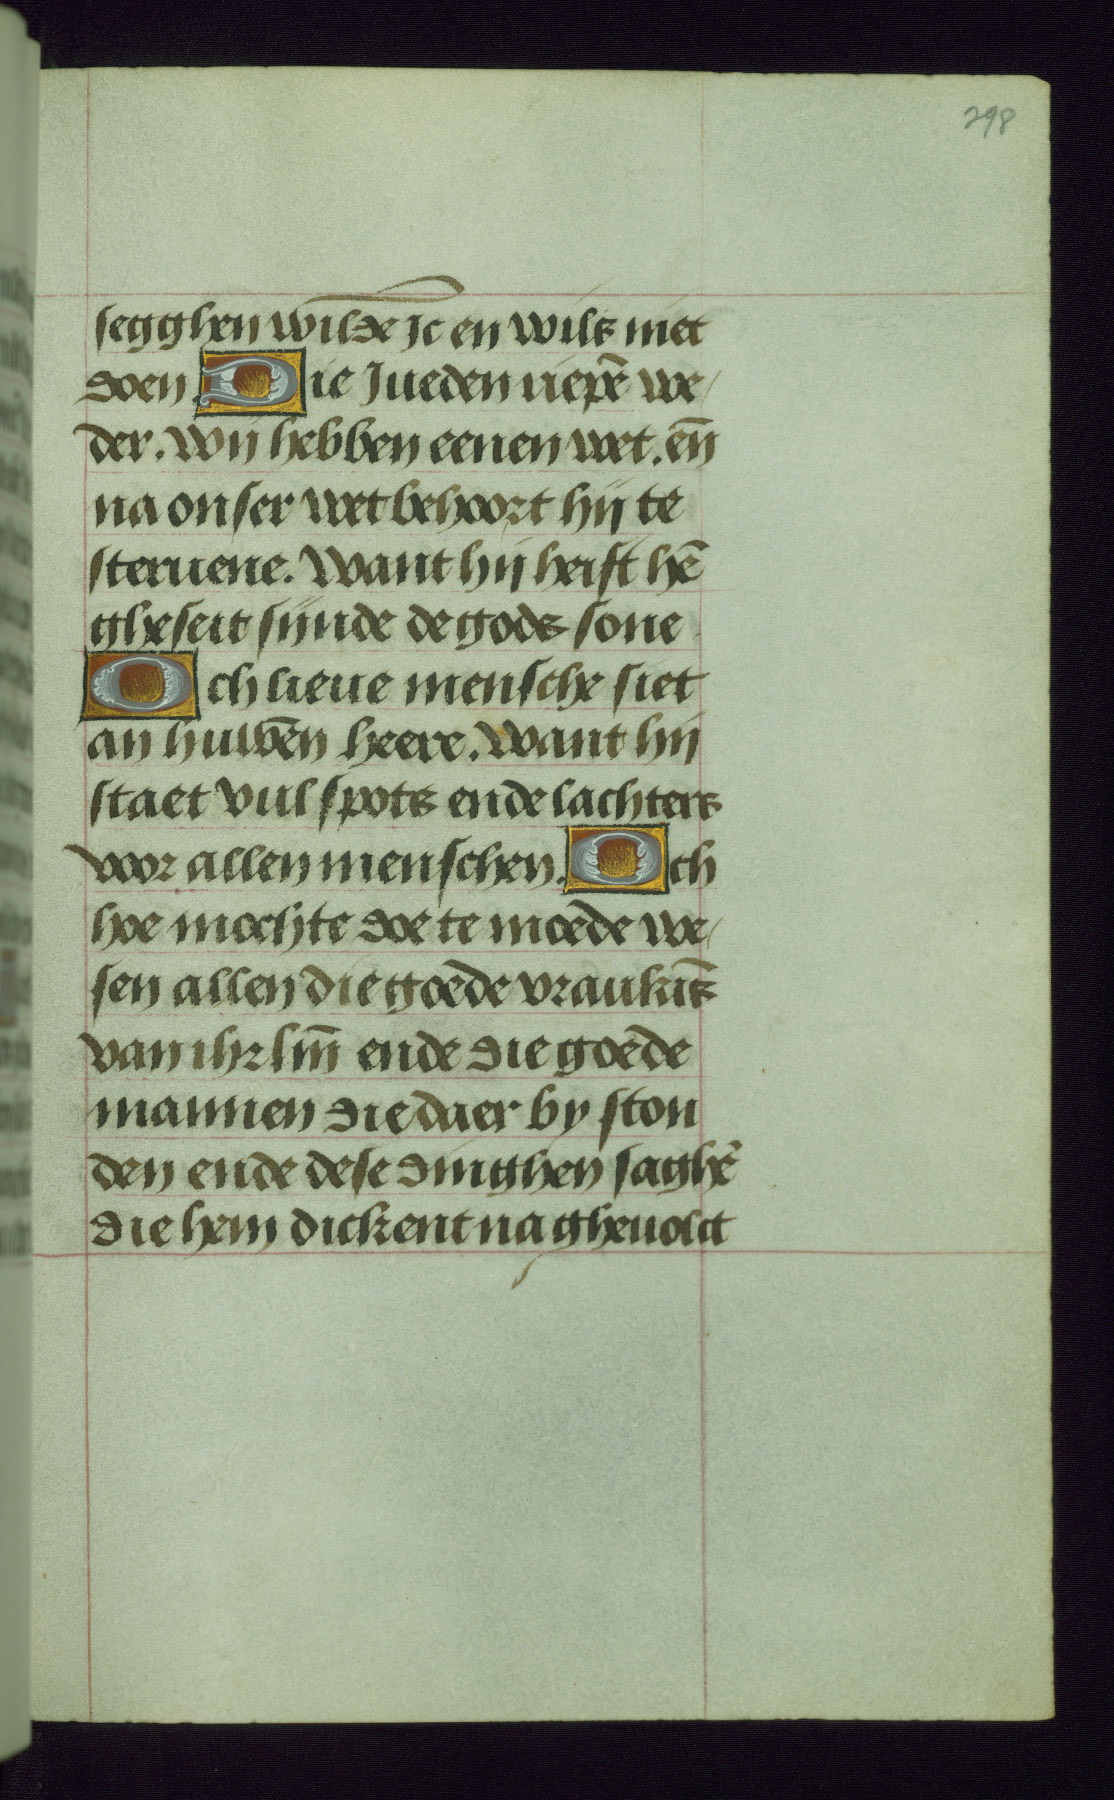 298
segghen wilde Ic en wils niet
doen. Die Jueden riepē we/
der. Wij hebben eenen wet. eñ
na onser wet behoort hij te
steruene. Want hij heift hē
gheseit sijnde de gods sone
Och lieue mensche siet
an huwēn heere. Want hij
staet vul spots ende lachters
voor allen menschen. Och
hoe mochte doe te moede we/
sen allen die goede vraukīs
van ihrlm̄ ende die goede
mannen die daer by ston
den ende dese dinghen saghē
die hem dickent na gheuolct